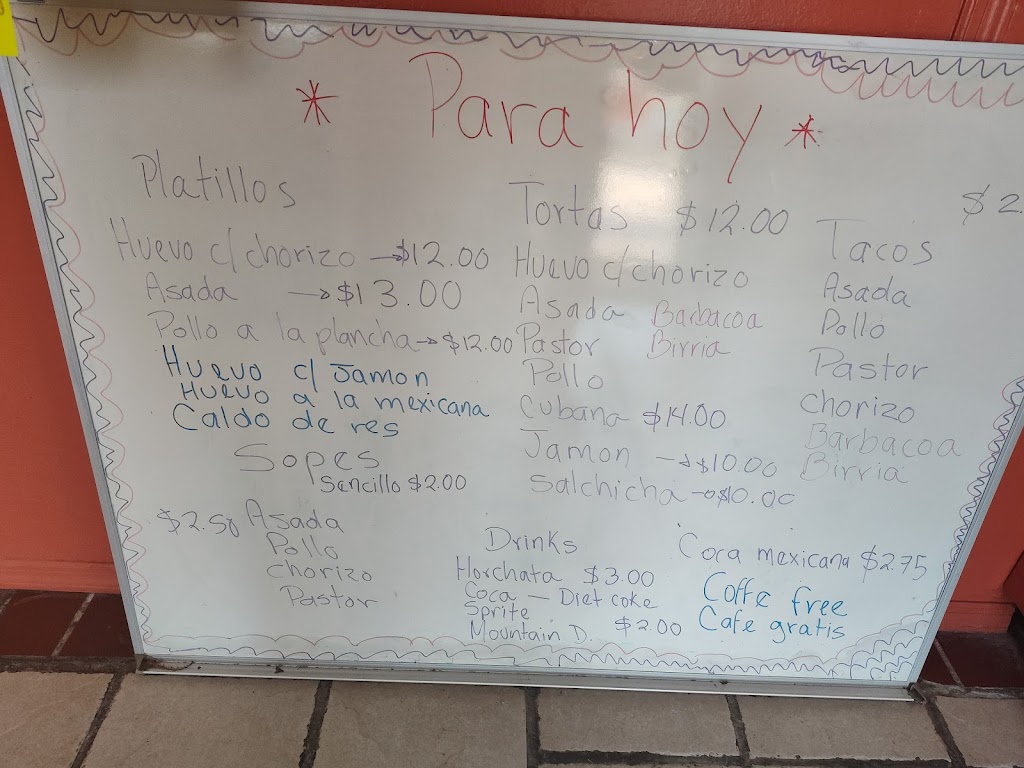 * Para hoy *
Platillos
Huevo c/chorizo → $12.00
Asada → $13.00
Pollo a la plancha → $12.00
Huevo c/ Jamon
Huevo a la mexicana
Caldo de res
Sopes
Sencillo $2.00
$2.50 Asada
Pollo
chorizo
Pastor
Tortas $12.00
Huevo c/chorizo
Asada Barbacoa
Pastor Birria
Pollo
Cubana $14.00
Jamon → $10.00
Salchicha → $10.00
$2.
Tacos
Asada
Pollo
Pastor
chorizo
Barbacoa
Birria
Drinks
Horchata $3.00
Coca — Diet coke
Sprite
Mountain D. $2.00
Coca mexicana $2.75
Coffe free
Cafe gratis